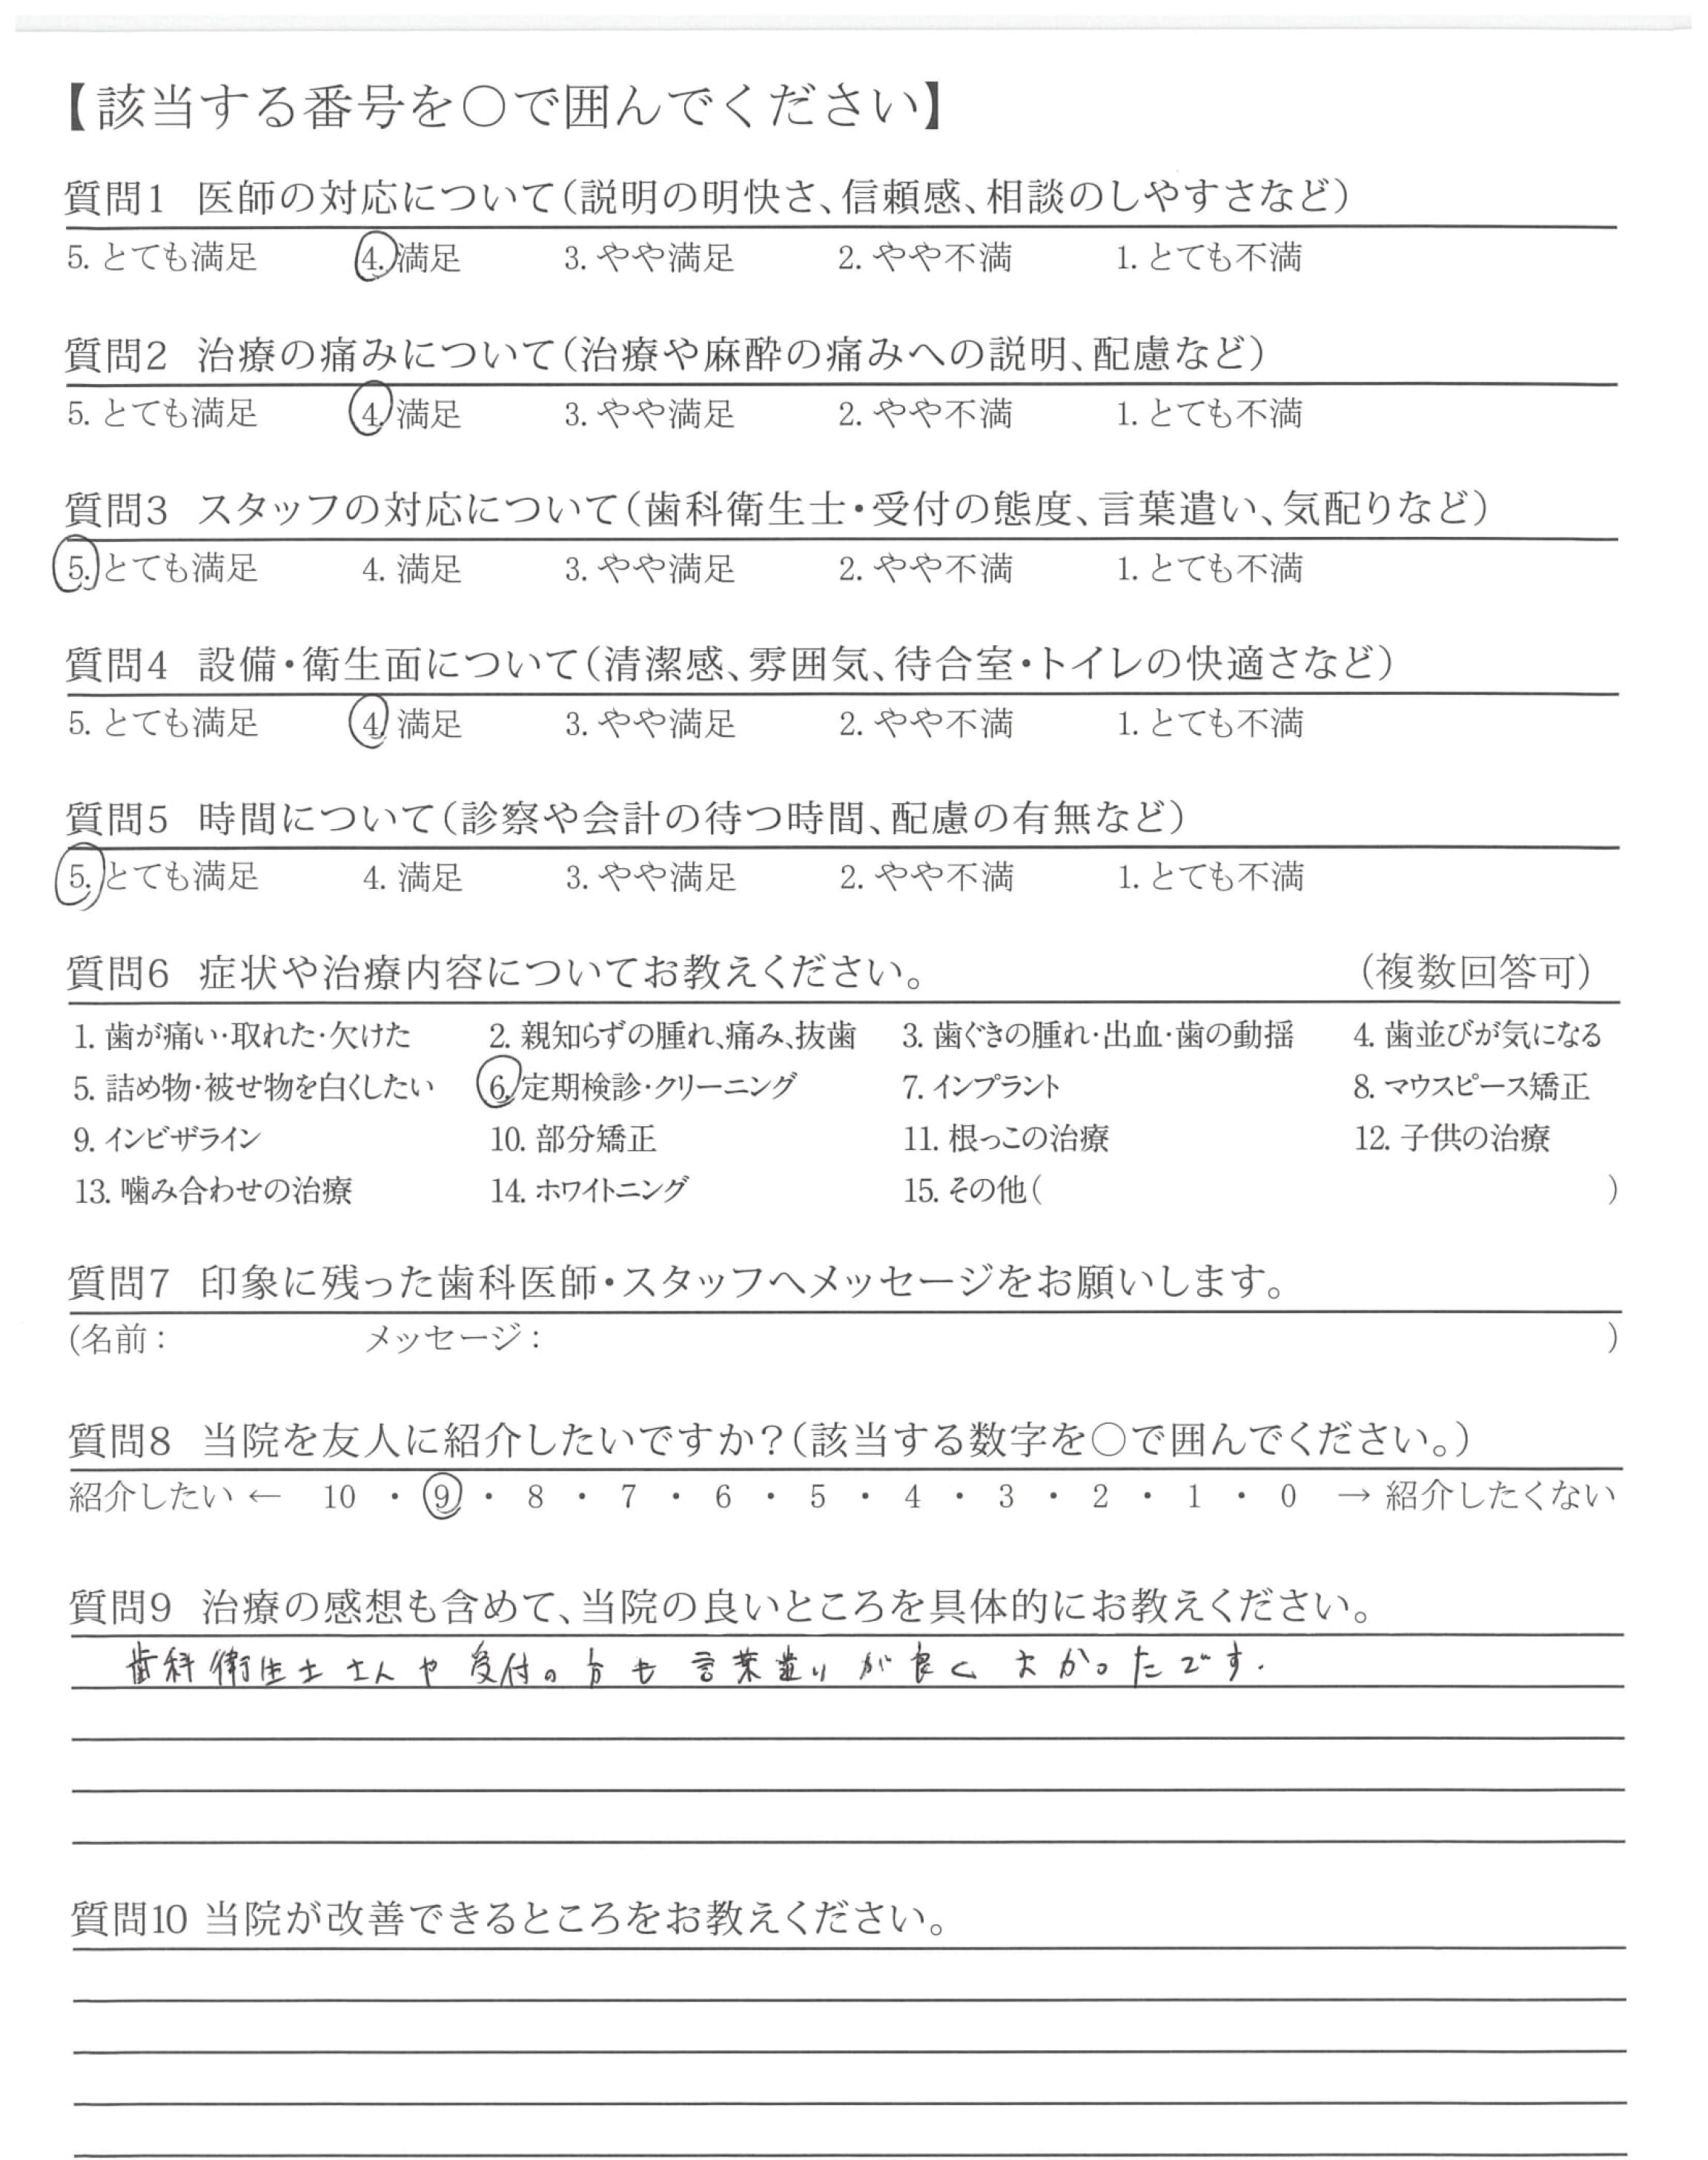 【該当する番号を○で囲んでください】
質問1 医師の対応について(説明の明快さ、信頼感、相談のしやすさなど)
5. とても満足 4. 満足 3. やや満足 2. やや不満 1. とても不満
質問2 治療の痛みについて(治療や麻酔の痛みへの説明、配慮など)
5. とても満足 4. 満足 3. やや満足 2. やや不満 1. とても不満
質問3 スタッフの対応について(歯科衛生士・受付の態度、言葉遣い、気配りなど)
5. とても満足 4. 満足 3. やや満足 2. やや不満 1. とても不満
質問4 設備・衛生面について(清潔感、雰囲気、待合室・トイレの快適さなど)
5. とても満足 4. 満足 3. やや満足 2. やや不満 1. とても不満
質問5 時間について(診察や会計の待つ時間、配慮の有無など)
5. とても満足 4. 満足 3. やや満足 2. やや不満 1. とても不満
質問6 症状や治療内容についてお教えください。 (複数回答可)
1. 歯が痛い・取れた・欠けた 2. 親知らずの腫れ、痛み、抜歯 3. 歯ぐきの腫れ・出血・歯の動揺 4. 歯並びが気になる
5. 詰め物・被せ物を白くしたい 6. 定期検診・クリーニング 7. インプラント 8. マウスピース矯正
9. インビザライン 10. 部分矯正 11. 根っこの治療 12. 子供の治療
13. 噛み合わせの治療 14. ホワイトニング 15. その他( )
質問7 印象に残った歯科医師・スタッフへメッセージをお願いします。
(名前: メッセージ: )
質問8 当院を友人に紹介したいですか?(該当する数字を○で囲んでください。)
紹介したい ← 10 ・ 9 ・ 8 ・ 7 ・ 6 ・ 5 ・ 4 ・ 3 ・ 2 ・ 1 ・ 0 → 紹介したくない
質問9 治療の感想も含めて、当院の良いところを具体的にお教えください。
歯科衛生士さんや受付の方も言葉遣いが良くよかったです.
質問10 当院が改善できるところをお教えください。